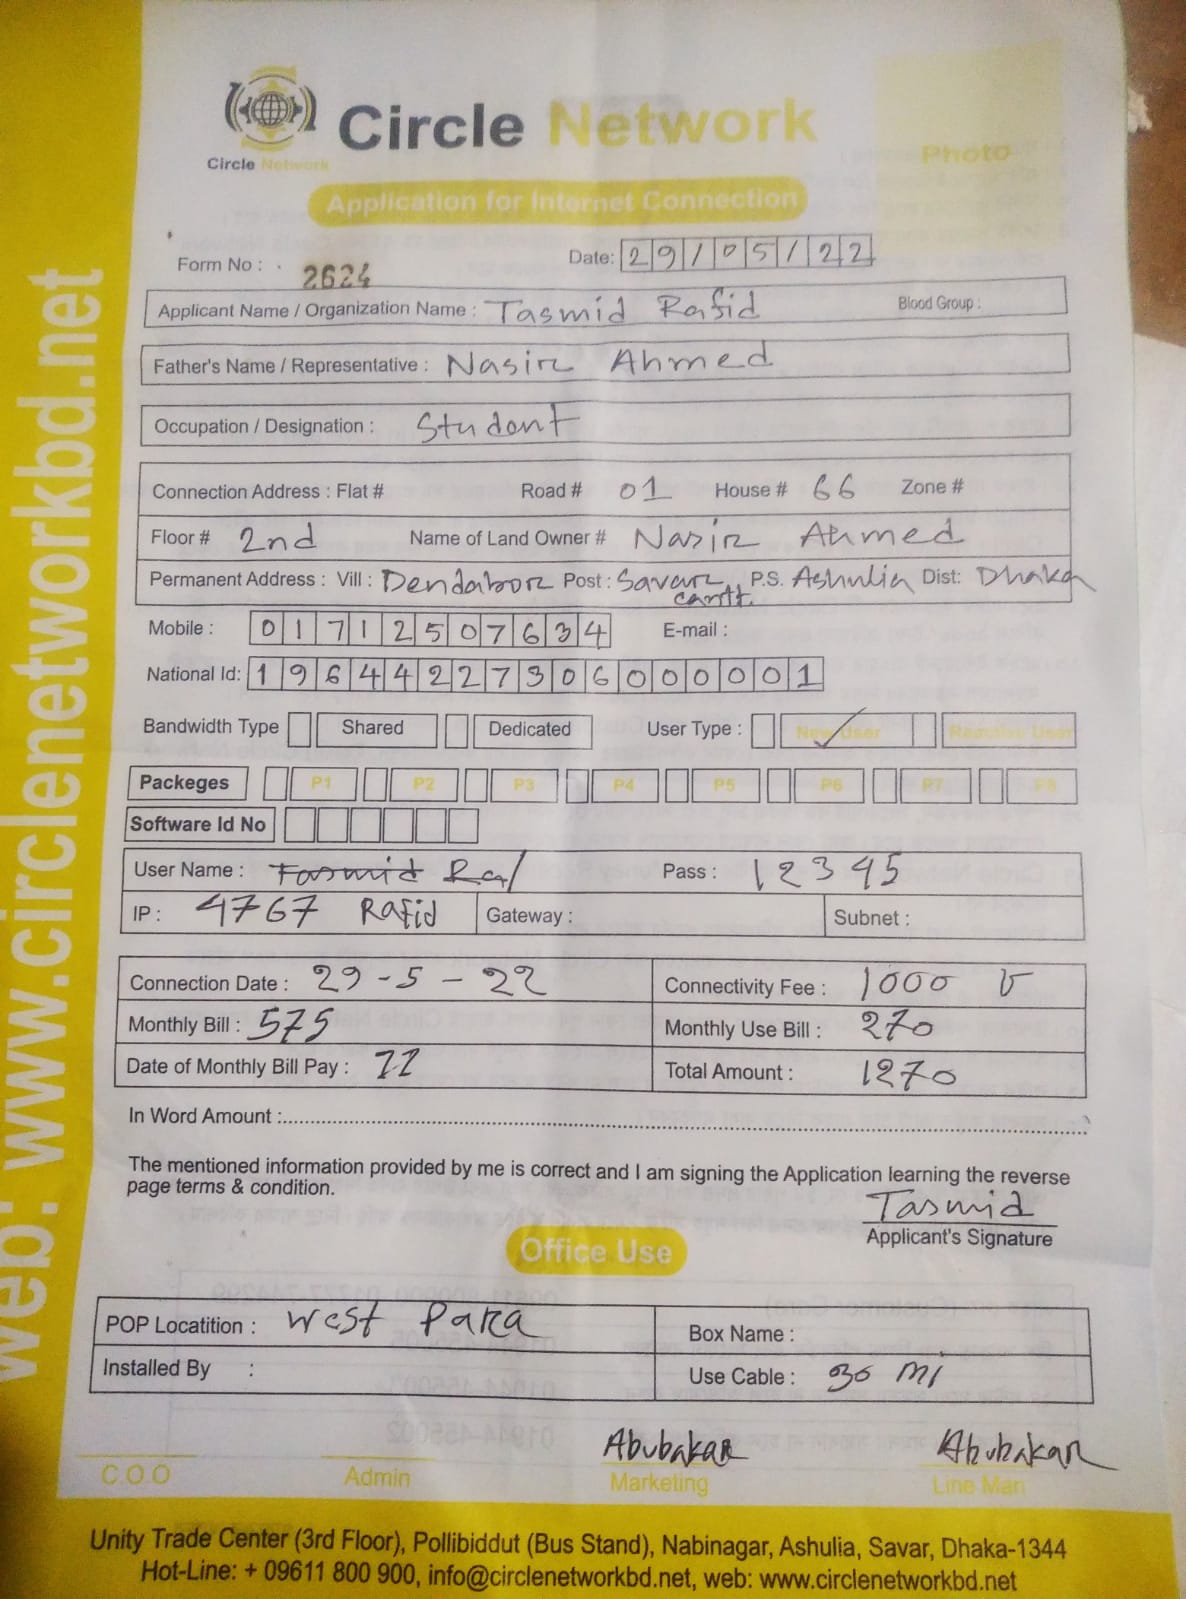 web: www.circlenetworkbd.net
Circle Network
Circle Network
Photo
Application for Internet Connection
Form No : 2624 Date: 29/05/22
Applicant Name / Organization Name : Tasmid Rafid Blood Group :
Father's Name / Representative : Nasir Ahmed
Occupation / Designation : Student
Connection Address : Flat # Road # 01 House # 66 Zone #
Floor # 2nd Name of Land Owner # Nasir Ahmed
Permanent Address : Vill : Dendabor Post : Savar cantt. P.S. Ashulia Dist: Dhaka
Mobile : 01712507634 E-mail :
National Id: 19644227306000001
Bandwidth Type Shared Dedicated User Type : New User Requsive User
Packeges P1 P2 P3 P4 P5 P6 P7 P8
Software Id No
User Name : Tasmid Raf Pass : 12345
IP : 4767 Rafid Gateway : Subnet :
Connection Date : 29-5-22 Connectivity Fee : 1000
Monthly Bill : 575 Monthly Use Bill : 270
Date of Monthly Bill Pay : Total Amount : 1270
In Word Amount :
The mentioned information provided by me is correct and I am signing the Application learning the reverse
page terms & condition.
Tasmid
Applicant's Signature
Office Use
POP Locatition : West Para Box Name :
Installed By : Use Cable : 30 mi
Abubakar Abubakar
C.O.O Admin Marketing Line Man
Unity Trade Center (3rd Floor), Pollibiddut (Bus Stand), Nabinagar, Ashulia, Savar, Dhaka-1344
Hot-Line: + 09611 800 900, info@circlenetworkbd.net, web: www.circlenetworkbd.net